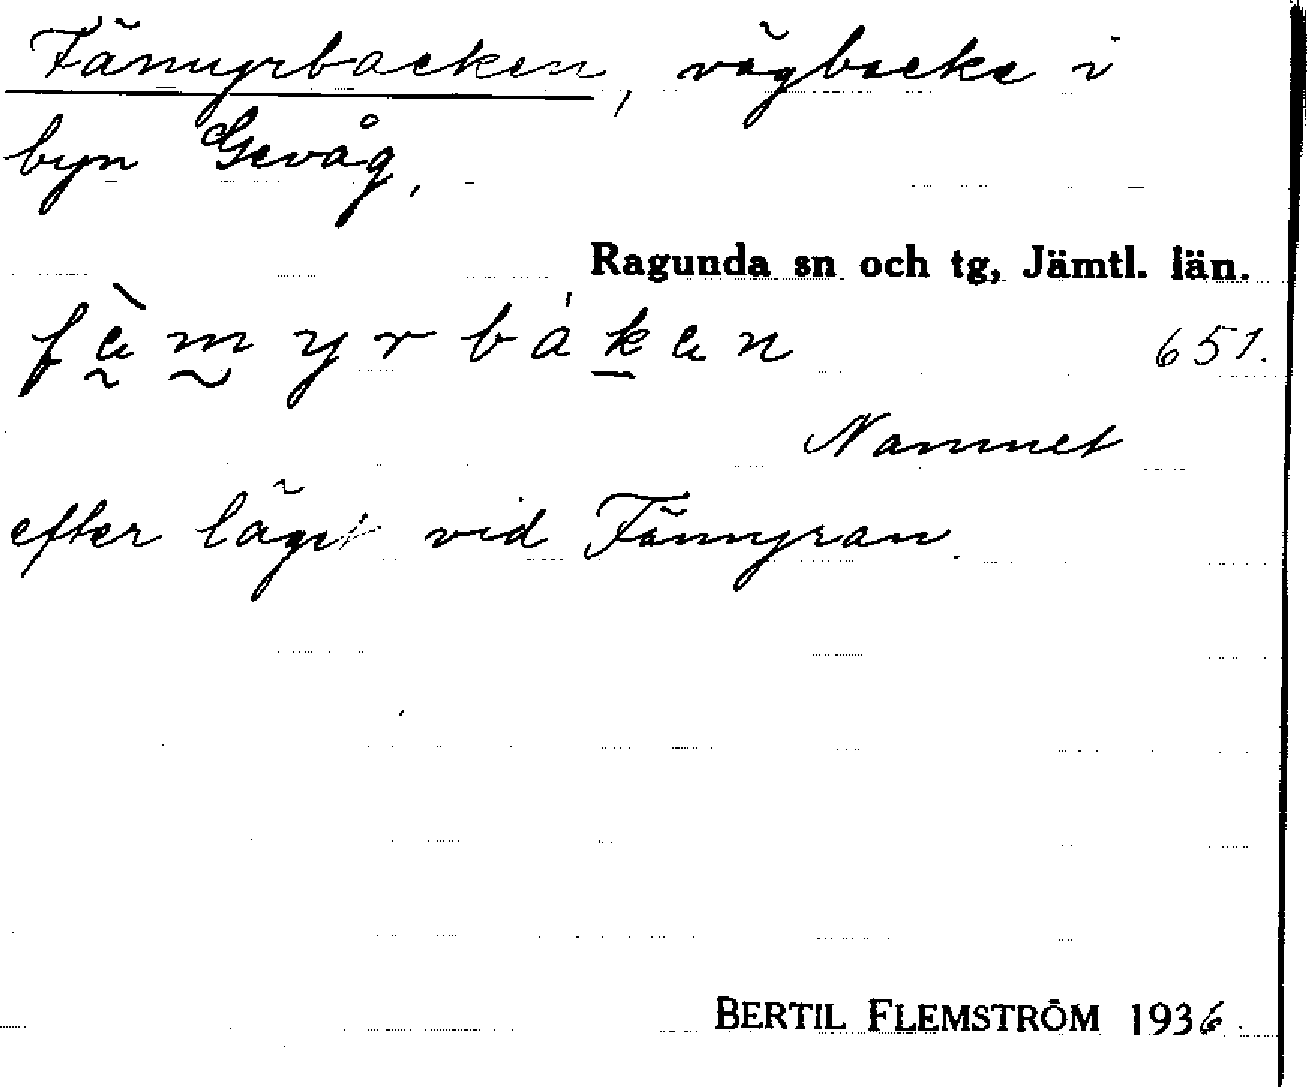 Fämyrbacken, vägbacke i
byn Gevåg,
Ragunda sn och tg, Jämtl. län.
fæ̀myrbákæn 651.
Namnet
efter läget vid Fämyran.
BERTIL FLEMSTRÖM 1936.